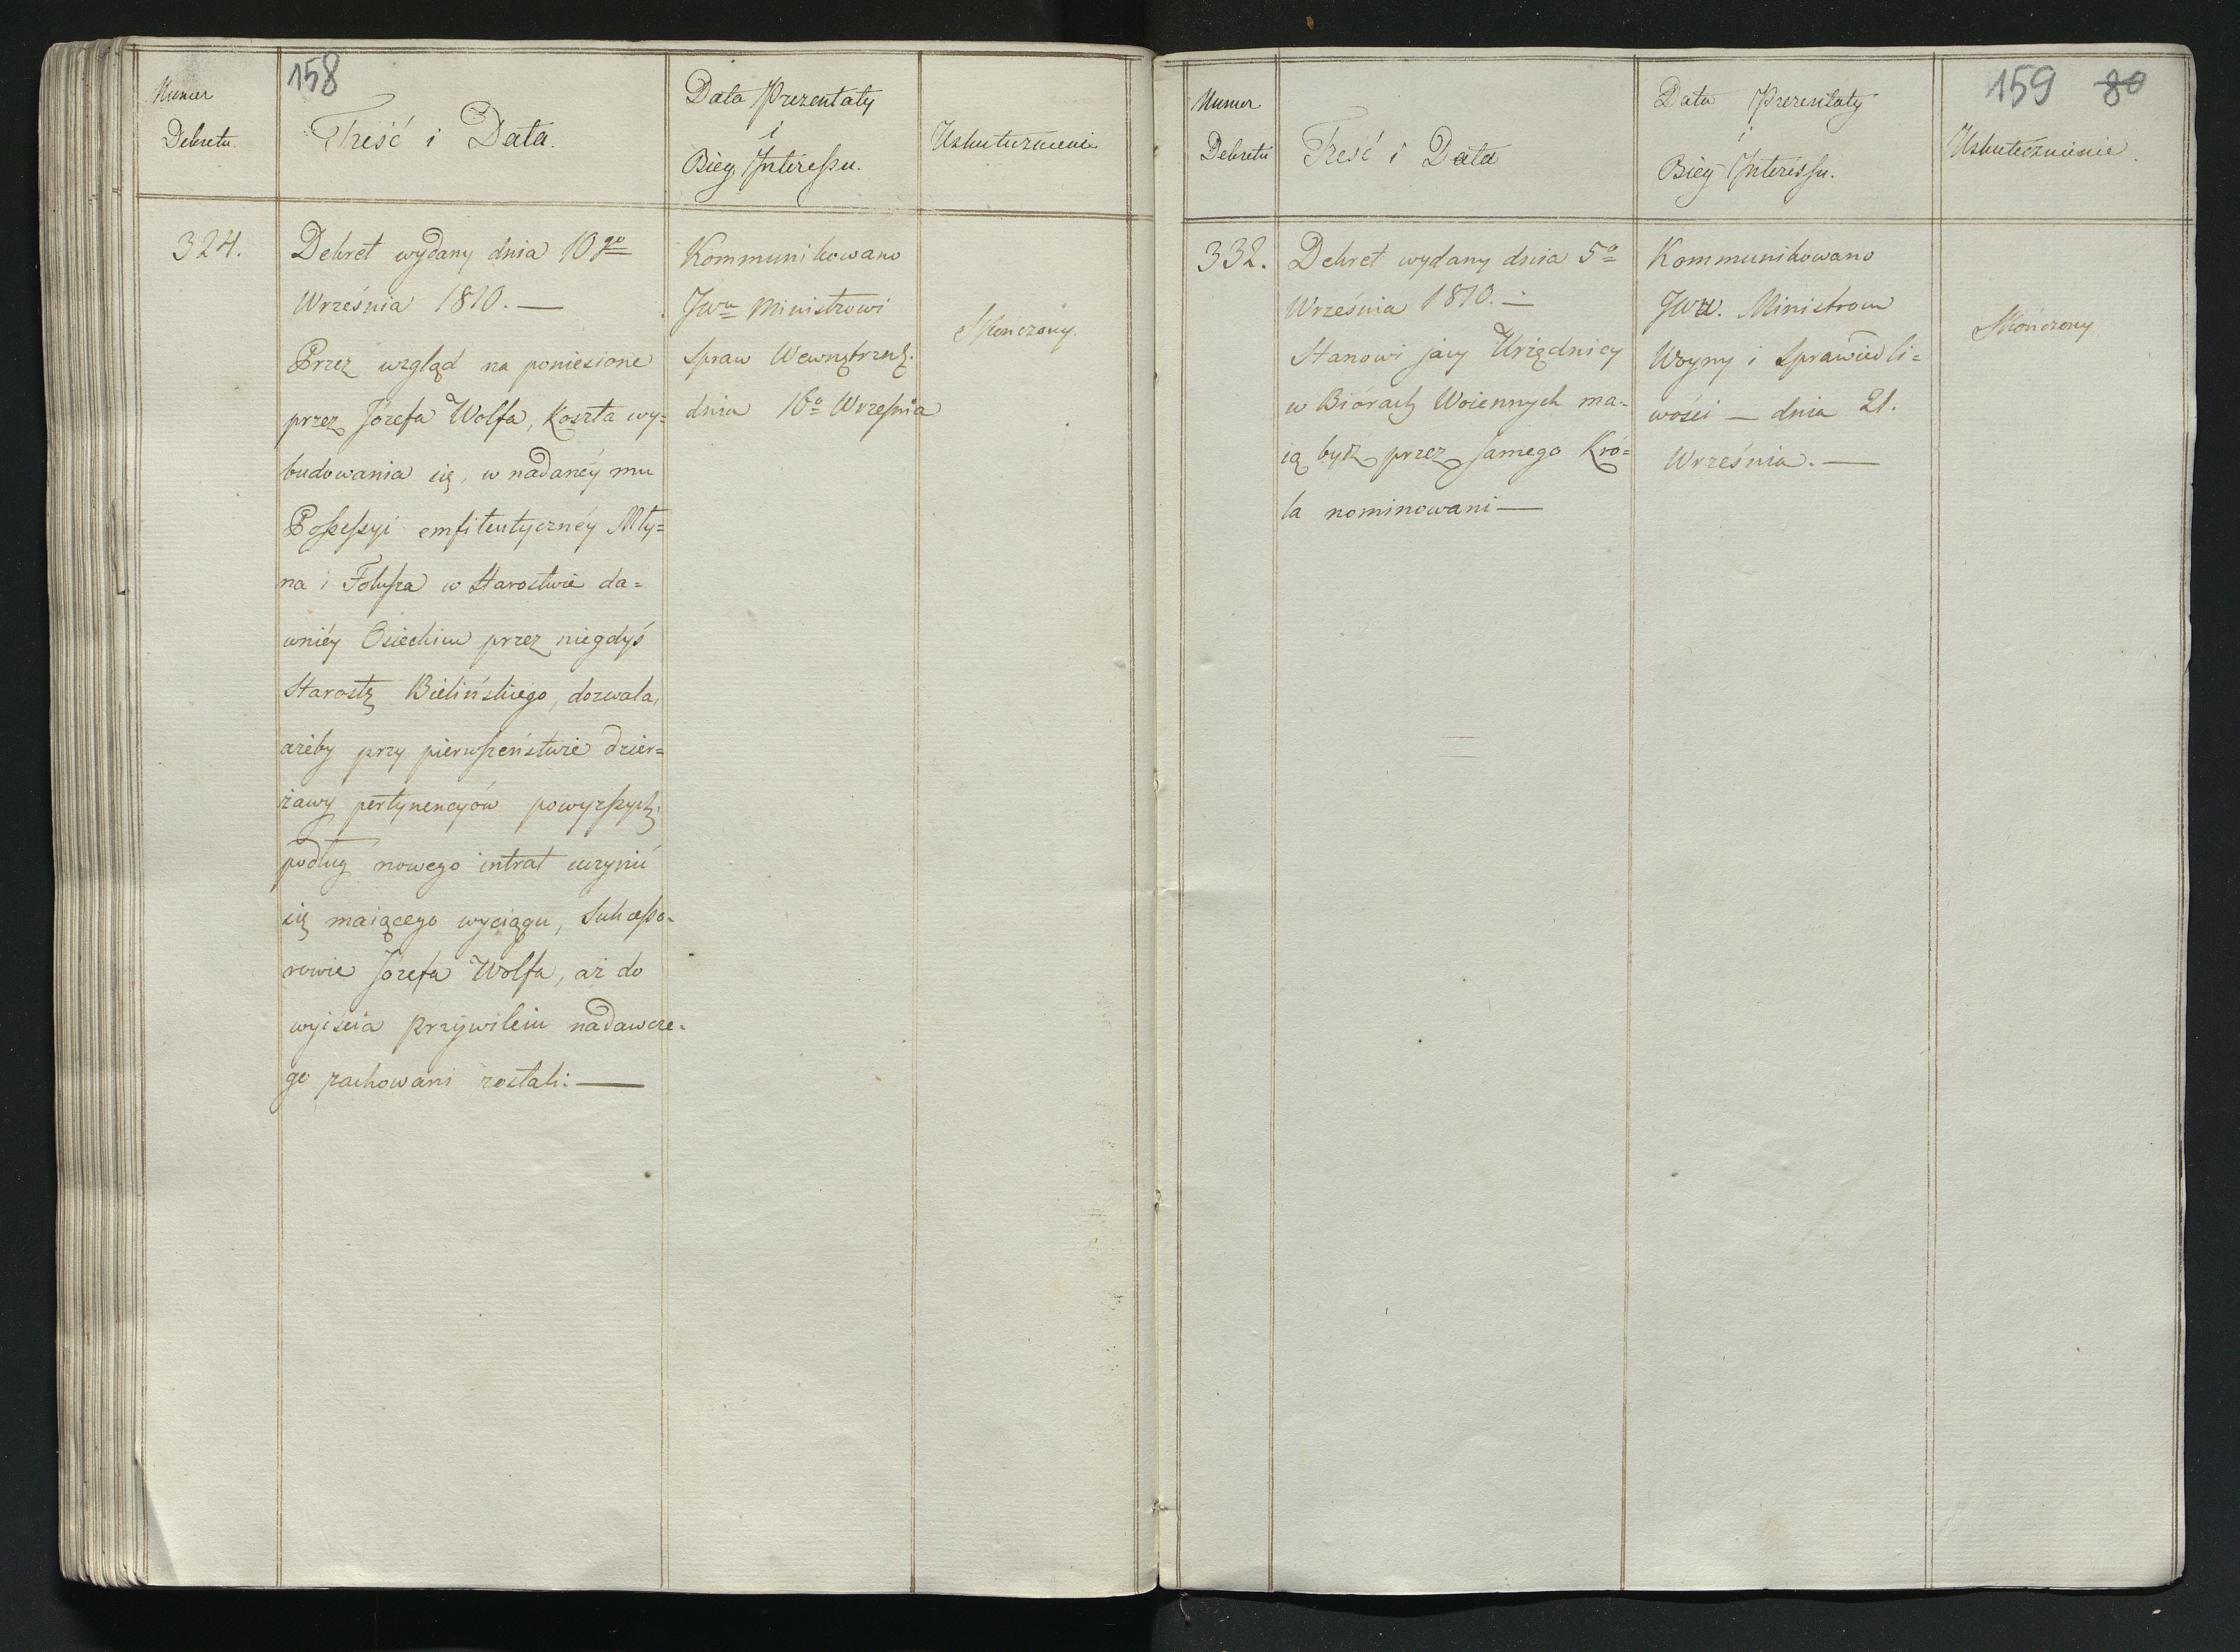 158
Numer
Dekretu.
Treść i Data.
Data Prezentaty
i
Bieg Interessu.
Uskutecznienie
324.
Dekret wydany dnia 10go
Września 1810. —
Przez wzgląd na poniesione
przez Józefa Wolfa, koszta wy=
budowania się, w nadanéy mu
Possessyi emfiteutycznéy Mły=
na i Folusza w Starostwie da=
wniéy Osieckim przez niegdyś
Starostę Bielińskiego, dozwala,
ażeby przy pierwszeństwie dzier=
żawy pertynencyów powyższych,
podług nowego intrat uczynić
się maiącego wyciągu, Sukcesso=
rowie Józefa Wolfa, aż do
wyiścia przywileiu nadawcze=
go zachowani zostali. —
Kommunikowano
JWu Ministrowi
Spraw Wewnętrznych.
dnia 16o Września
Skończony.
159 80
Numer
Dekretu
Treść i Data
Data Prezentaty
i
Bieg Interessu.
Uskutecznienie.
332.
Dekret wydany dnia 5o
Września 1810. —
Stanowi jacy Urzędnicy
w Biórach Woiennych ma=
ią bydź przez samego Kró=
la nominowani —
Kommunikowano
JWW. Ministrom
Woyny i Sprawiedli=
wości — dnia 21.
Września. —
Skończony